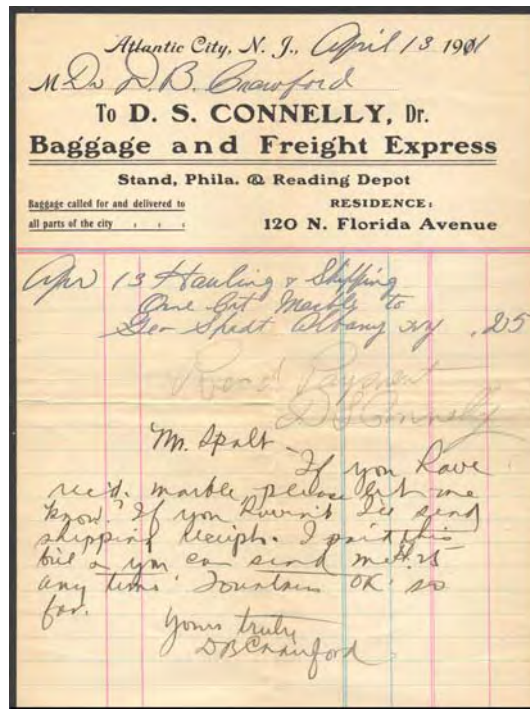 Atlantic City, N. J., April 13 1901
M Dr D. B. Crawford
To D. S. CONNELLY, Dr.
Baggage and Freight Express
Stand, Phila. & Reading Depot
Baggage called for and delivered to
all parts of the city
RESIDENCE:
120 N. Florida Avenue
Apr 13 Hauling & Shipping
One Crt Marble to
Geo Spalt Albany NY .25
Rec'd Payment
D S Connelly
Mr. Spalt -
If you have
rec'd. marble please let me
know. If you haven't I'll send
shipping receipt. I paid this
bill & you can send me .25
any time. Fountain OK so
far.
Yours truly
D B Crawford